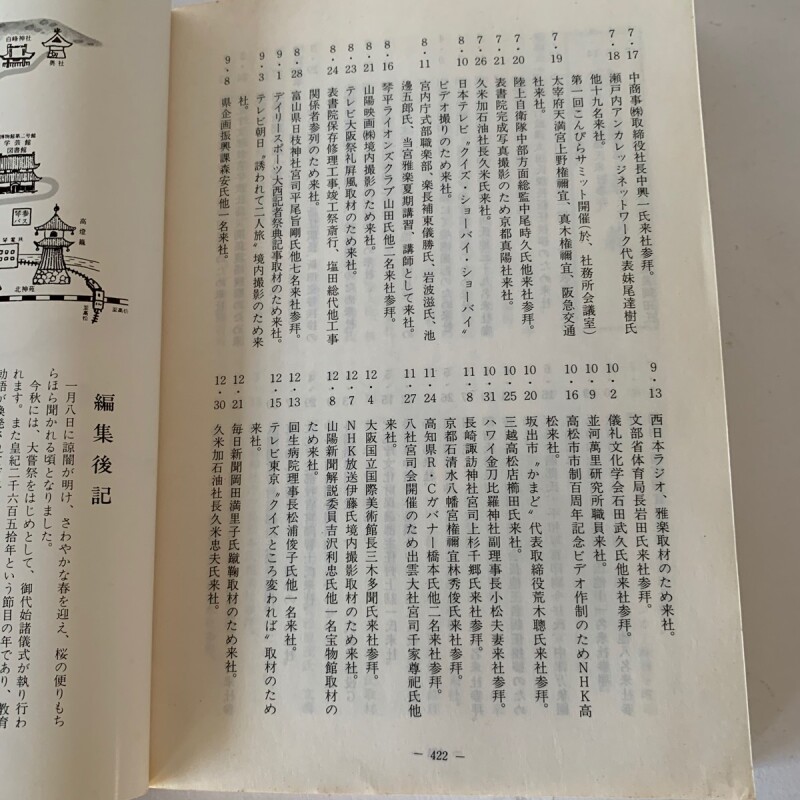 7・17 中商事㈱取締役社長中興一氏来社参拝。
7・18 瀬戸内アンカレッジネットワーク代表妹尾達樹氏
他十九名来社。
第一回こんぴらサミット開催(於、社務所会議室)
7・19 太宰府天満宮上野権禰宜、真木権禰宜、阪急交通
社来社。
7・20 陸上自衛隊中部方面総監中尾時久氏他来社参拝。
7・21 表書院完成写真撮影のため京都真陽社来社。
7・26 久米加石油社長久米氏来社。
8・10 日本テレビ〝クイズ・ショーバイ・ショーバイ〟
ビデオ撮りのため来社。
8・11 宮内庁式部職楽部、楽長補東儀勝氏、岩波滋氏、池
邊五郎氏、当宮雅楽夏期講習、講師として来社。
8・16 琴平ライオンズクラブ山田氏他二名来社参拝。
8・21 山陽映画㈱境内撮影のため来社。
8・23 テレビ大阪祭礼屛風取材のため来社。
8・24 表書院保存修理工事竣工祭斎行、塩田総代他工事
関係者参列のため来社。
8・28 富山県日枝神社宮司平尾旨剛氏他七名来社参拝。
9・1 デイリースポーツ大西記者祭典記事取材のため来社。
9・3 テレビ朝日〝誘われて二人旅〟境内撮影のため来
社。
9・8 県企画振興課森安氏他一名来社。
9・13 西日本ラジオ、雅楽取材のため来社。
文部省体育局長岩田氏来社参拝。
10・2 儀礼文化学会石田武久氏他来社参拝。
10・9 並河萬里研究所職員来社。
10・16 高松市市制百周年記念ビデオ作制のためNHK高
松来社。
10・20 坂出市〝かまど〟代表取締役荒木聰氏来社参拝。
10・25 三越高松店櫛田氏来社。
10・31 ハワイ金刀比羅神社副理事長小松夫妻来社参拝。
11・8 長崎諏訪神社宮司上杉千郷氏来社参拝。
京都石清水八幡宮権禰宜林秀俊氏来社参拝。
11・24 高知県R・Cガバナー橋本氏他二名来社参拝。
11・27 八社宮司会開催のため出雲大社宮司千家尊祀氏他
来社。
12・4 大阪国立国際美術館長三木多聞氏来社参拝。
12・7 NHK放送伊藤氏境内撮影取材のため来社。
12・8 山陽新聞解説委員吉沢利忠氏他一名宝物館取材の
ため来社。
12・13 回生病院理事長松浦俊子氏他一名来社。
12・15 テレビ東京〝クイズところ変われば〟取材のため
来社。
12・21 毎日新聞岡田満里子氏蹴鞠取材のため来社。
12・30 久米加石油社長久米忠夫氏来社。
― 422 ―
白峰神社
奥社
学芸館
図書館
琴参
バス
高燈籠
北神苑
至高松
至高松
編集後記
一月八日に諒闇が明け、さわやかな春を迎え、桜の便りもち
らほら聞かれる頃となりました。
今秋には、大嘗祭をはじめとして、御代始諸儀式が執り行わ
れます。また皇紀二千六百五拾年という節目の年であり、教育